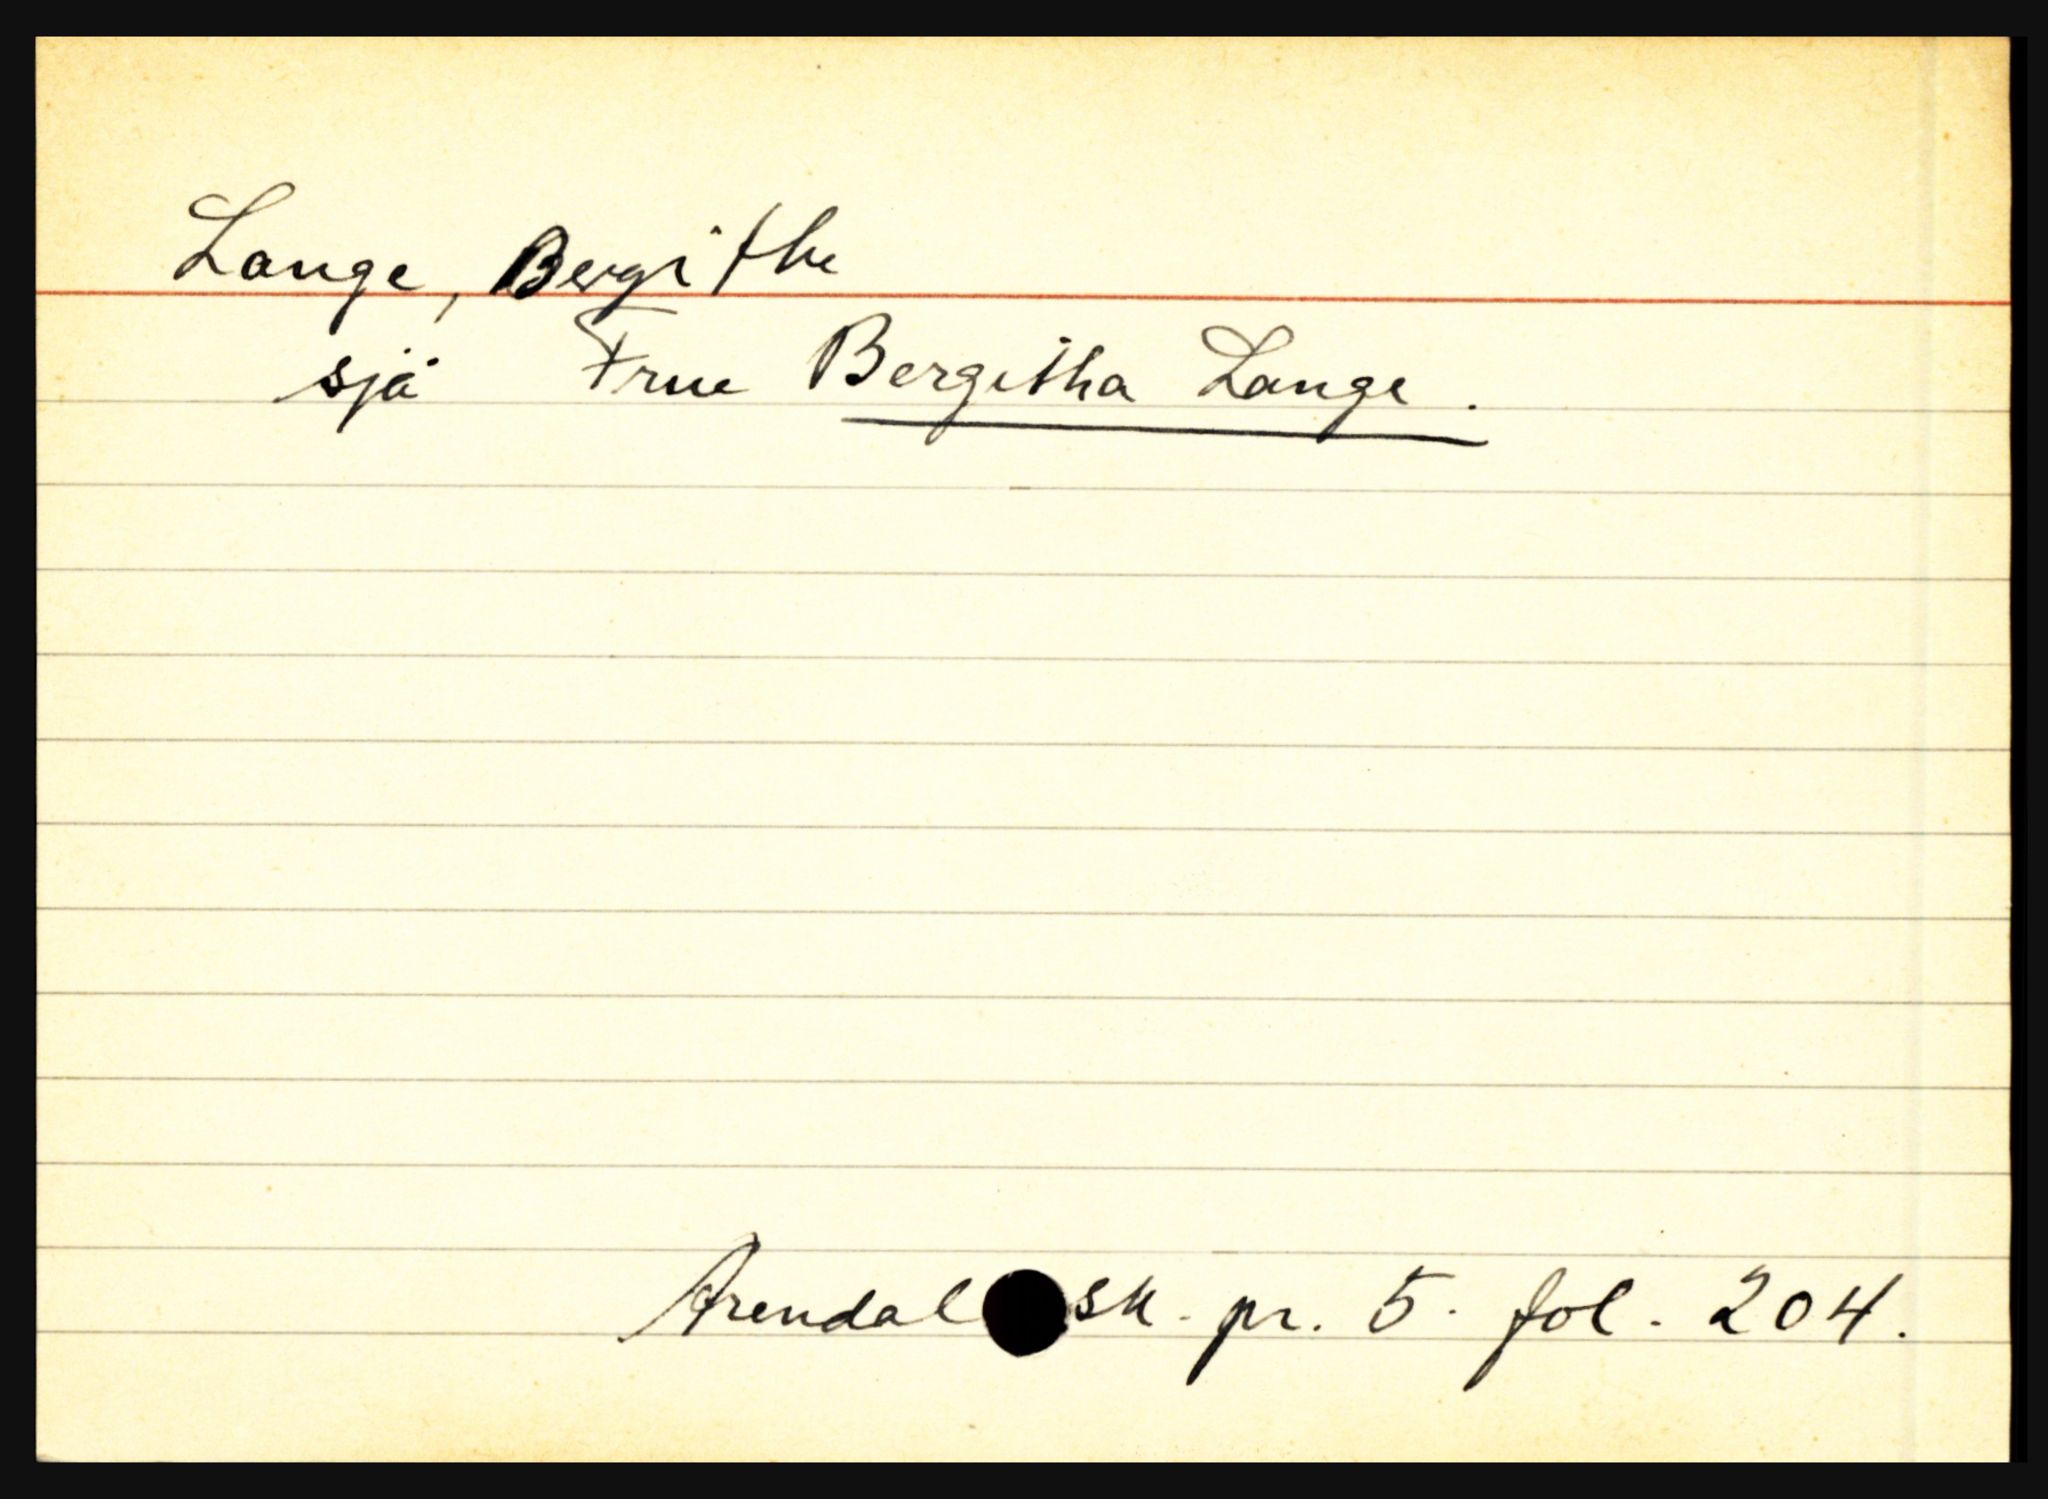 Lange, Bergithe
sjå Frue Bergitha Lange.
Arendal sk. pr. 5. fol. 204.